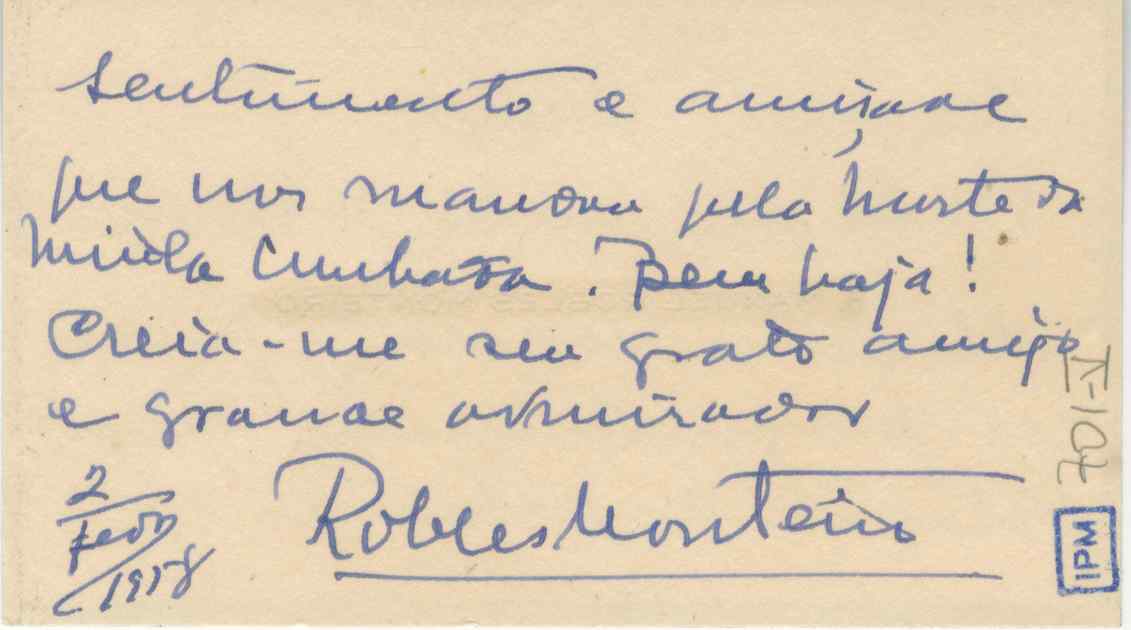 sentimento e amizade
que nos mandou pela morte da
minha cunhada. Bem haja!
Creia-me seu grato amigo
e grande admirador
2
Fevº
1958
Robles Monteiro
701-V
IPM